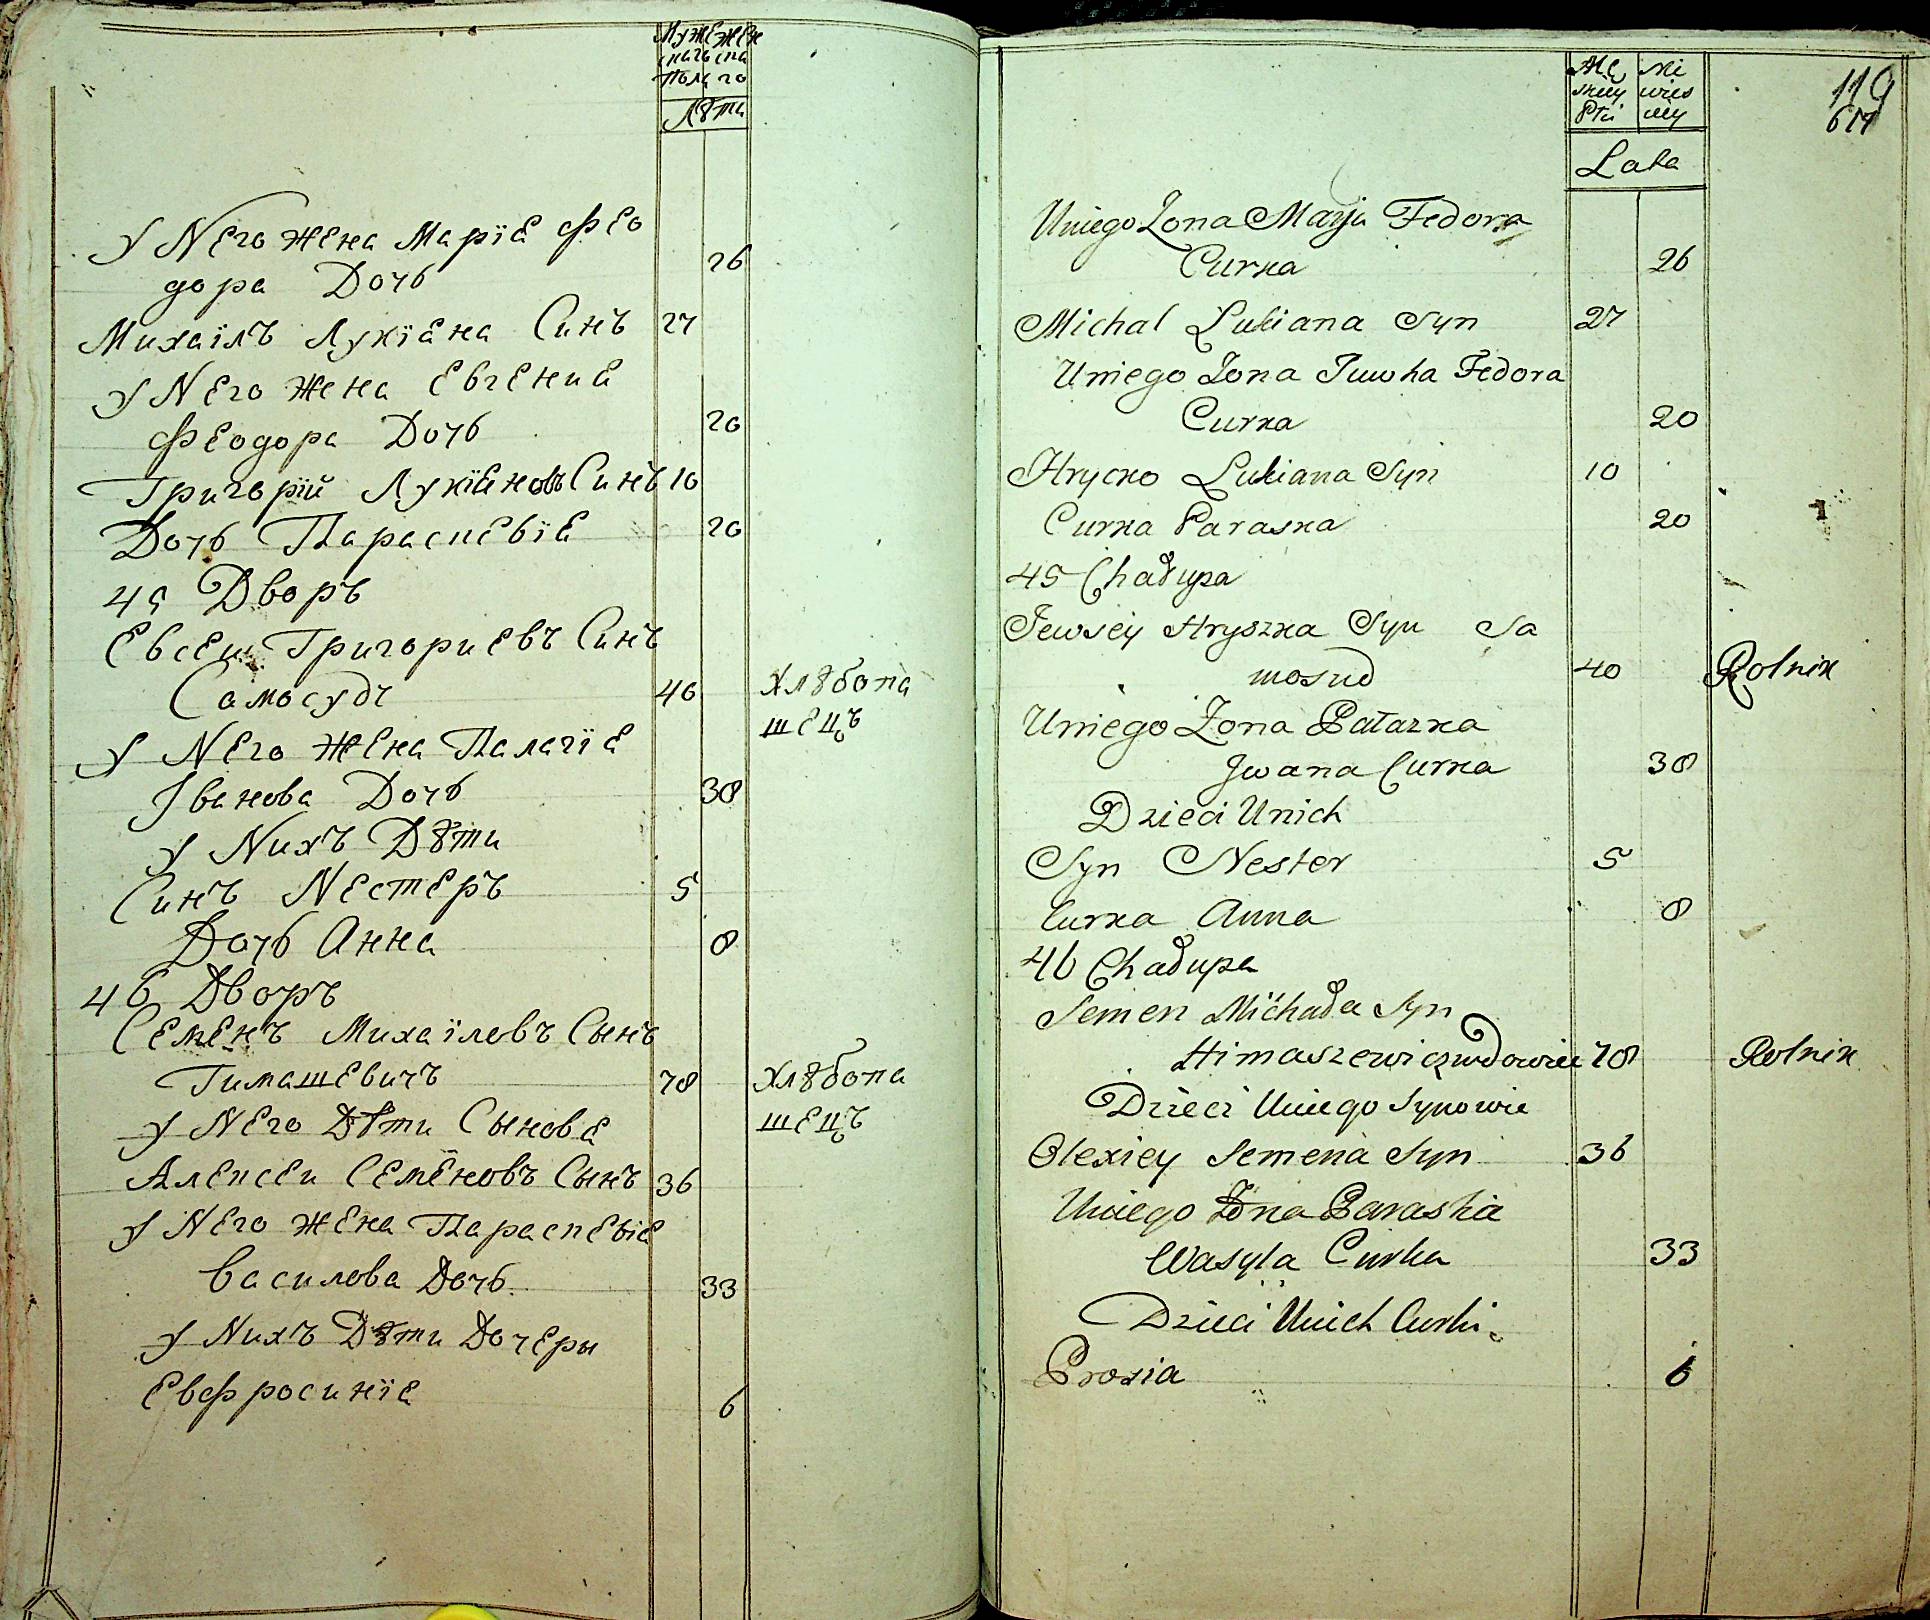 Муже Жен
скаго ска
Пола го
Лѣти
У Него жена Марїа Фео
дора Дочь 26
Михаїлъ Лукїана Синъ 27
У Него жена Евгениа
Феодора Дочь 20
Григорїй Лукїановъ Синъ 10
Дочь Параскевїа 20
45 Дворъ
Евсеи Григориевъ Синъ
Самосудъ 40 Хлѣбопа
шецъ
У Него жена Палагїа
Іванова Дочь 38
У Нихъ Дѣти
Синъ Нестеръ 5
Дочь Анна 8
46 Дворъ
Семенъ Михаїловъ Сынъ
Гимашевичъ 78 Хлѣбопа
шецъ
У Него Дѣти Сынова
Алексеи Семёновъ Сынъ 36
У Него жена Параскевіа
Василова Дочь 33
У Нихъ Дѣти Дочеры
Евфросинїа 6
Mę Nie
skiey wies
Płci ciey
Lata
119
617
Uniego Żona Marja Fedora
Curka 26
Michal Lukiana Syn 27
Uniego Żona Juwha Fedora
Curka 20
Hrycko Lukiana Syn 10
Curka Paraska 20
45 Chałupa
Jewsey Hryszka Syn Sa
mosud 40 Rolnik
Uniego Żona Pałazka
Jwana Curka 38
Dzieci Unich
Syn Nester 5
Curka Anna 8
46 Chałupa
Semen Michała Syn
Himaszewicz wdowiec 78 Rolnik
Dzieci Uniego Synowie
Olexiey Semena Syn 36
Uniego Żona Paraskia
Wasyla Curka 33
Dzieci Unich Curki
Prosia 6